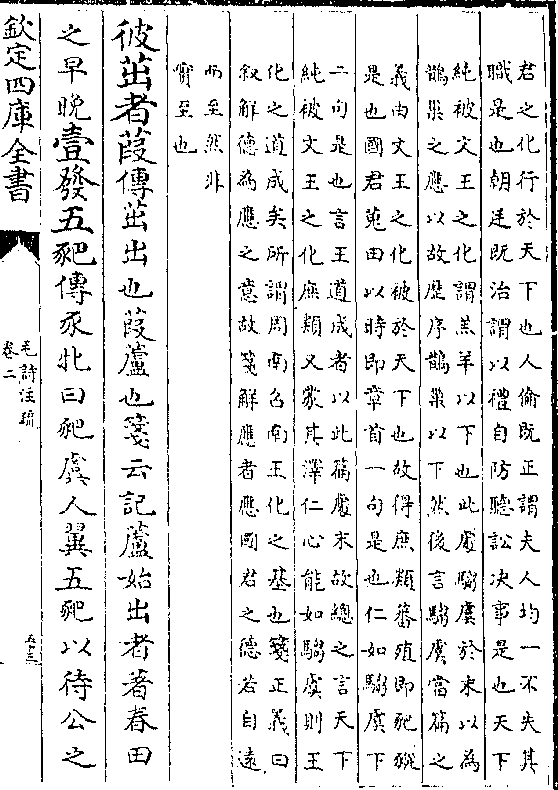 君之化行於天下也人倫既正謂夫人均一不失其
職是也朝廷既治謂以禮自防聽訟決事是也天下
純被文王之化謂羔羊以下也此處騶虞於末以為
鵲巢之應以故歴序鵲巢以下然後言騶虞當篇之
義由文王之化被於天下也故得庶類蕃殖即豝豵
是也國君蒐田以時即章首一句是也仁如騶虞下
二句是也言王道成者以此篇處末故總之言天下
純被文王之化庶類又蒙其澤仁心能如騶虞則王
化之道成矣所謂周南召南王化之基也箋正義曰
叙解德為應之意故箋解應者應國君之德若自遠
而至然非
實至也
彼茁者葭傳茁出也葭蘆也箋云記蘆始出者著春田
之早晚壹發五豝傳豕牝曰豝虞人翼五豝以待公之
欽定四庫全書
毛詩注疏
卷二
五十三